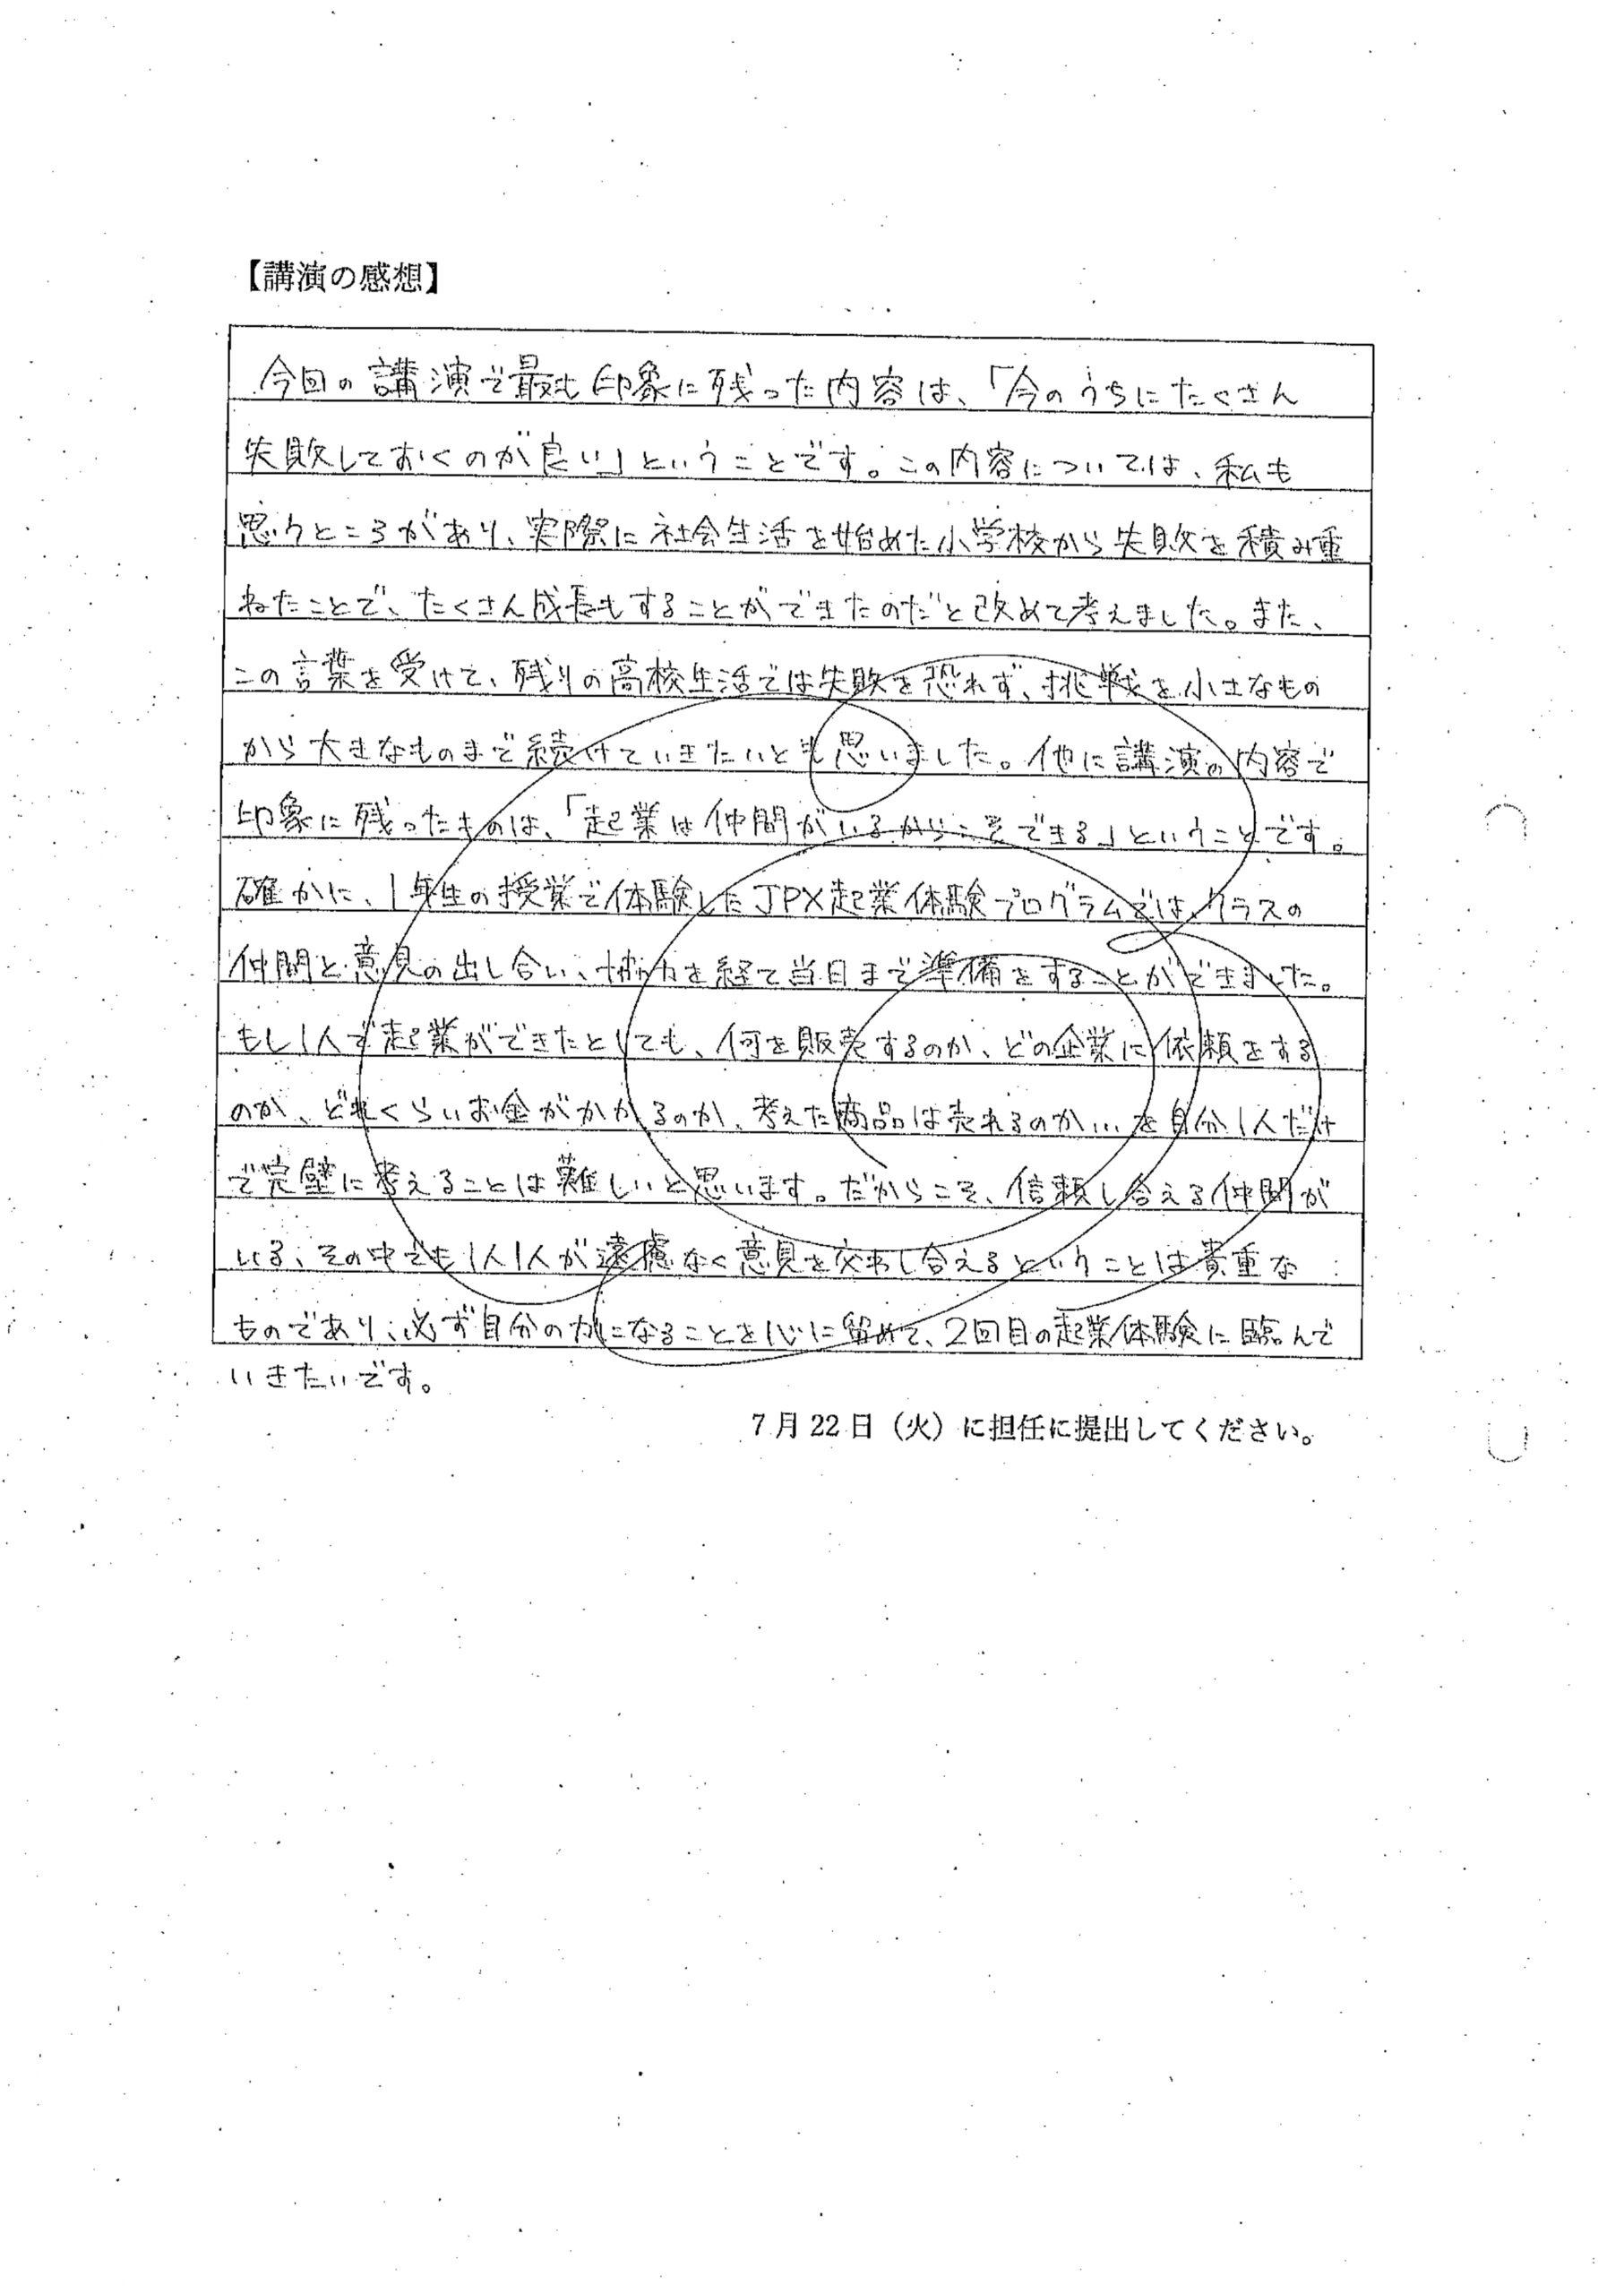 【講演の感想】
今回の講演で最も印象に残った内容は、「今のうちにたくさん
失敗しておくのが良い」ということです。この内容については、私も
思うところがあり、実際に社会生活を始めた小学校から失敗を積み重
ねたことで、たくさん成長もすることができたのだと改めて考えました。また、
この言葉を受けて、残りの高校生活では失敗を恐れず、挑戦を小さなもの
から大きなものまで続けていきたいとも思いました。他に講演の内容で
印象に残ったものは、「起業は仲間がいるからこそできる」ということです。
確かに、1年生の授業で体験したJPX起業体験プログラムでは、クラスの
仲間と意見の出し合い、協力を経て当日まで準備をすることができました。
もし1人で起業ができたとしても、何を販売するのか、どの企業に依頼をする
のか、どれくらいお金がかかるのか、考えた商品は売れるのか…を自分1人だけ
で完璧に考えることは難しいと思います。だからこそ、信頼し合える仲間が
いる、その中でも1人1人が遠慮なく意見を交わし合えるということは貴重な
ものであり、必ず自分の力になることを心に留めて、2回目の起業体験に臨んで
いきたいです。
7月22日（火）に担任に提出してください。